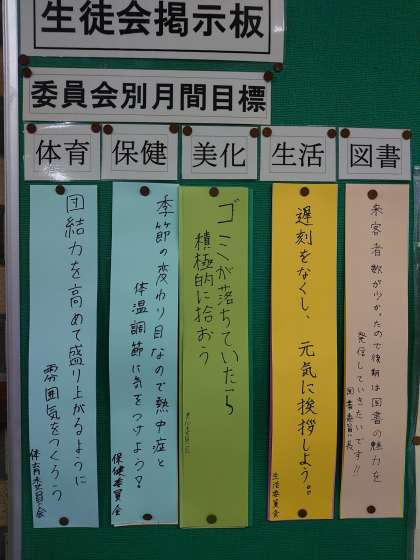 生徒会掲示板
委員会別月間目標
体育
保健
美化
生活
図書
団結力を高めて盛り上がるように
雰囲気をつくろう
体育委員会
季節の変わり目なので熱中症と
体温調節に気をつけよう?
保健委員会
ゴミが落ちていたら
積極的に拾おう
遅刻をなくし、元気に挨拶しよう。
生活委員会
来客者数が少なかったので後期は図書の魅力を
発信していきたいです!!
図書委員